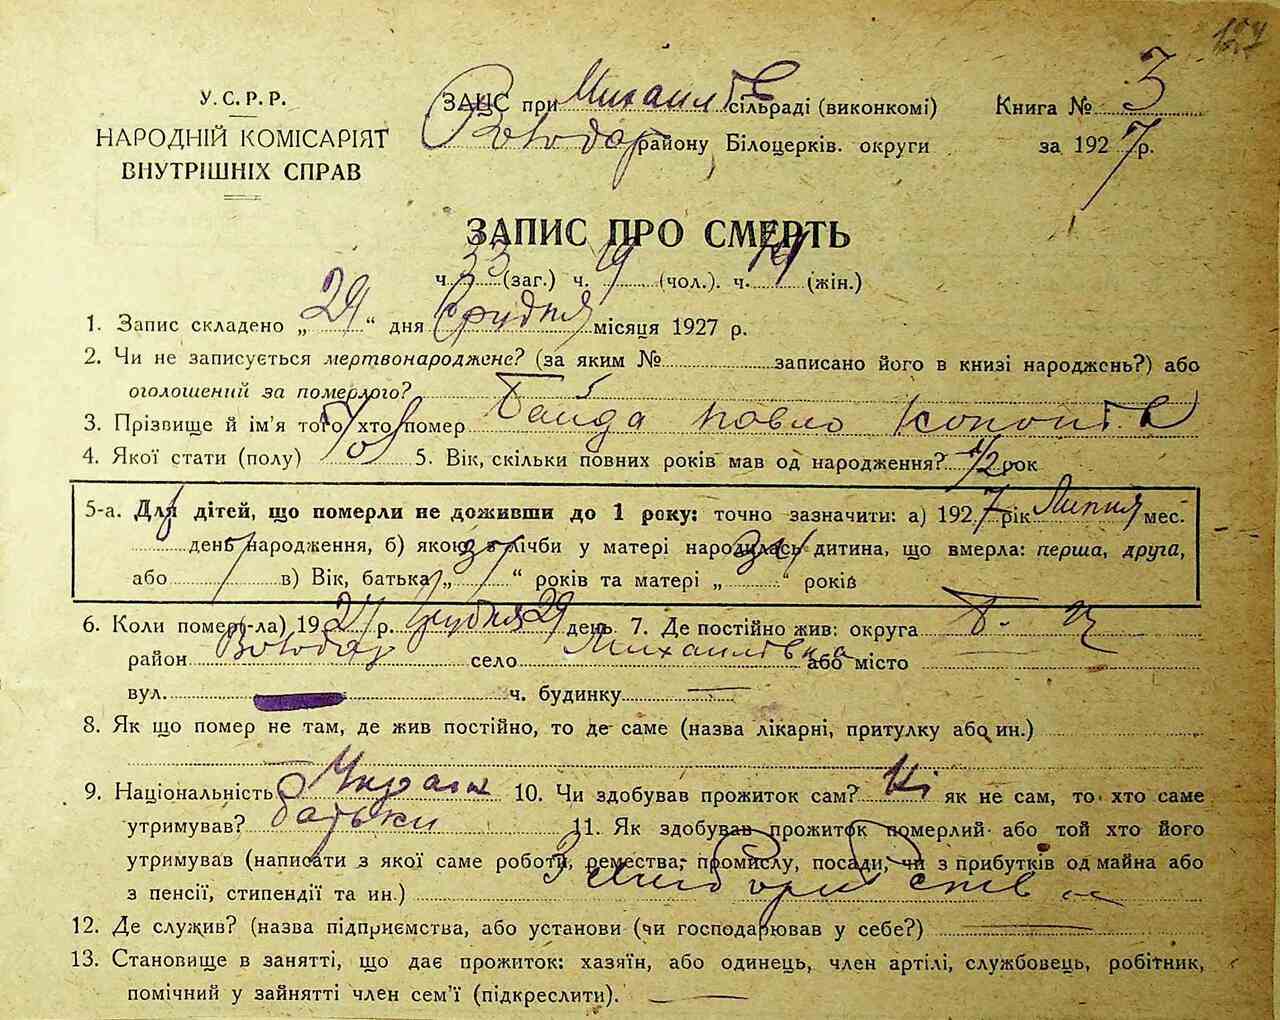 127
У.С.Р.Р.
НАРОДНІЙ КОМІСАРІЯТ
ВНУТРІШНІХ СПРАВ
ЗАЦС при Михаилів сільраді (виконкомі)
Володар району, Білоцерків. округи
Книга № 3
за 1927 р.
ЗАПИС ПРО СМЕРТЬ
ч. 33 (заг.) ч. 19 (чол.). ч. 14 (жін.)
1. Запис складено „ 29 “ дня Грудня місяця 1927 р.
2. Чи не записується мертвонароджене? (за яким № записано його в книзі народжень?) або
оголошений за померлого?
3. Прізвище й ім'я того хто помер Байда Павло Конон
4. Якої стати (полу) чол 5. Вік, скільки повних років мав од народження? 1/2 рок
5-а. Для дітей, що померли не доживши до 1 року: точно зазначити: а) 1927 рік Липня мес.
день народження, б) якою з лічби у матері народилась дитина, що вмерла: перша, друга,
або 7 в) Вік, батька „ 37 “ років та матері „ 34 “ років
6. Коли помер(-ла) 1927 р. Грудня 29 день 7. Де постійно жив: округа Б. Ц
район Володар село Михаилівка або місто
вул. ч. будинку
8. Як що помер не там, де жив постійно, то де саме (назва лікарні, притулку або ин.)
9. Національність Украін 10. Чи здобував прожиток сам? Ні як не сам, то хто саме
утримував? батьки 11. Як здобував прожиток померлий або той хто його
утримував (написати з якої саме роботи, ремества, промислу, посади, чи з прибутків од майна або
з пенсії, стипендії та ин.) З хліборобств
12. Де служив? (назва підприємства, або установи (чи господарював у себе?)
13. Становище в занятті, що дає прожиток: хазяїн, або одинець, член артілі, службовець, робітник,
помічний у зайнятті член сем'ї (підкреслити).